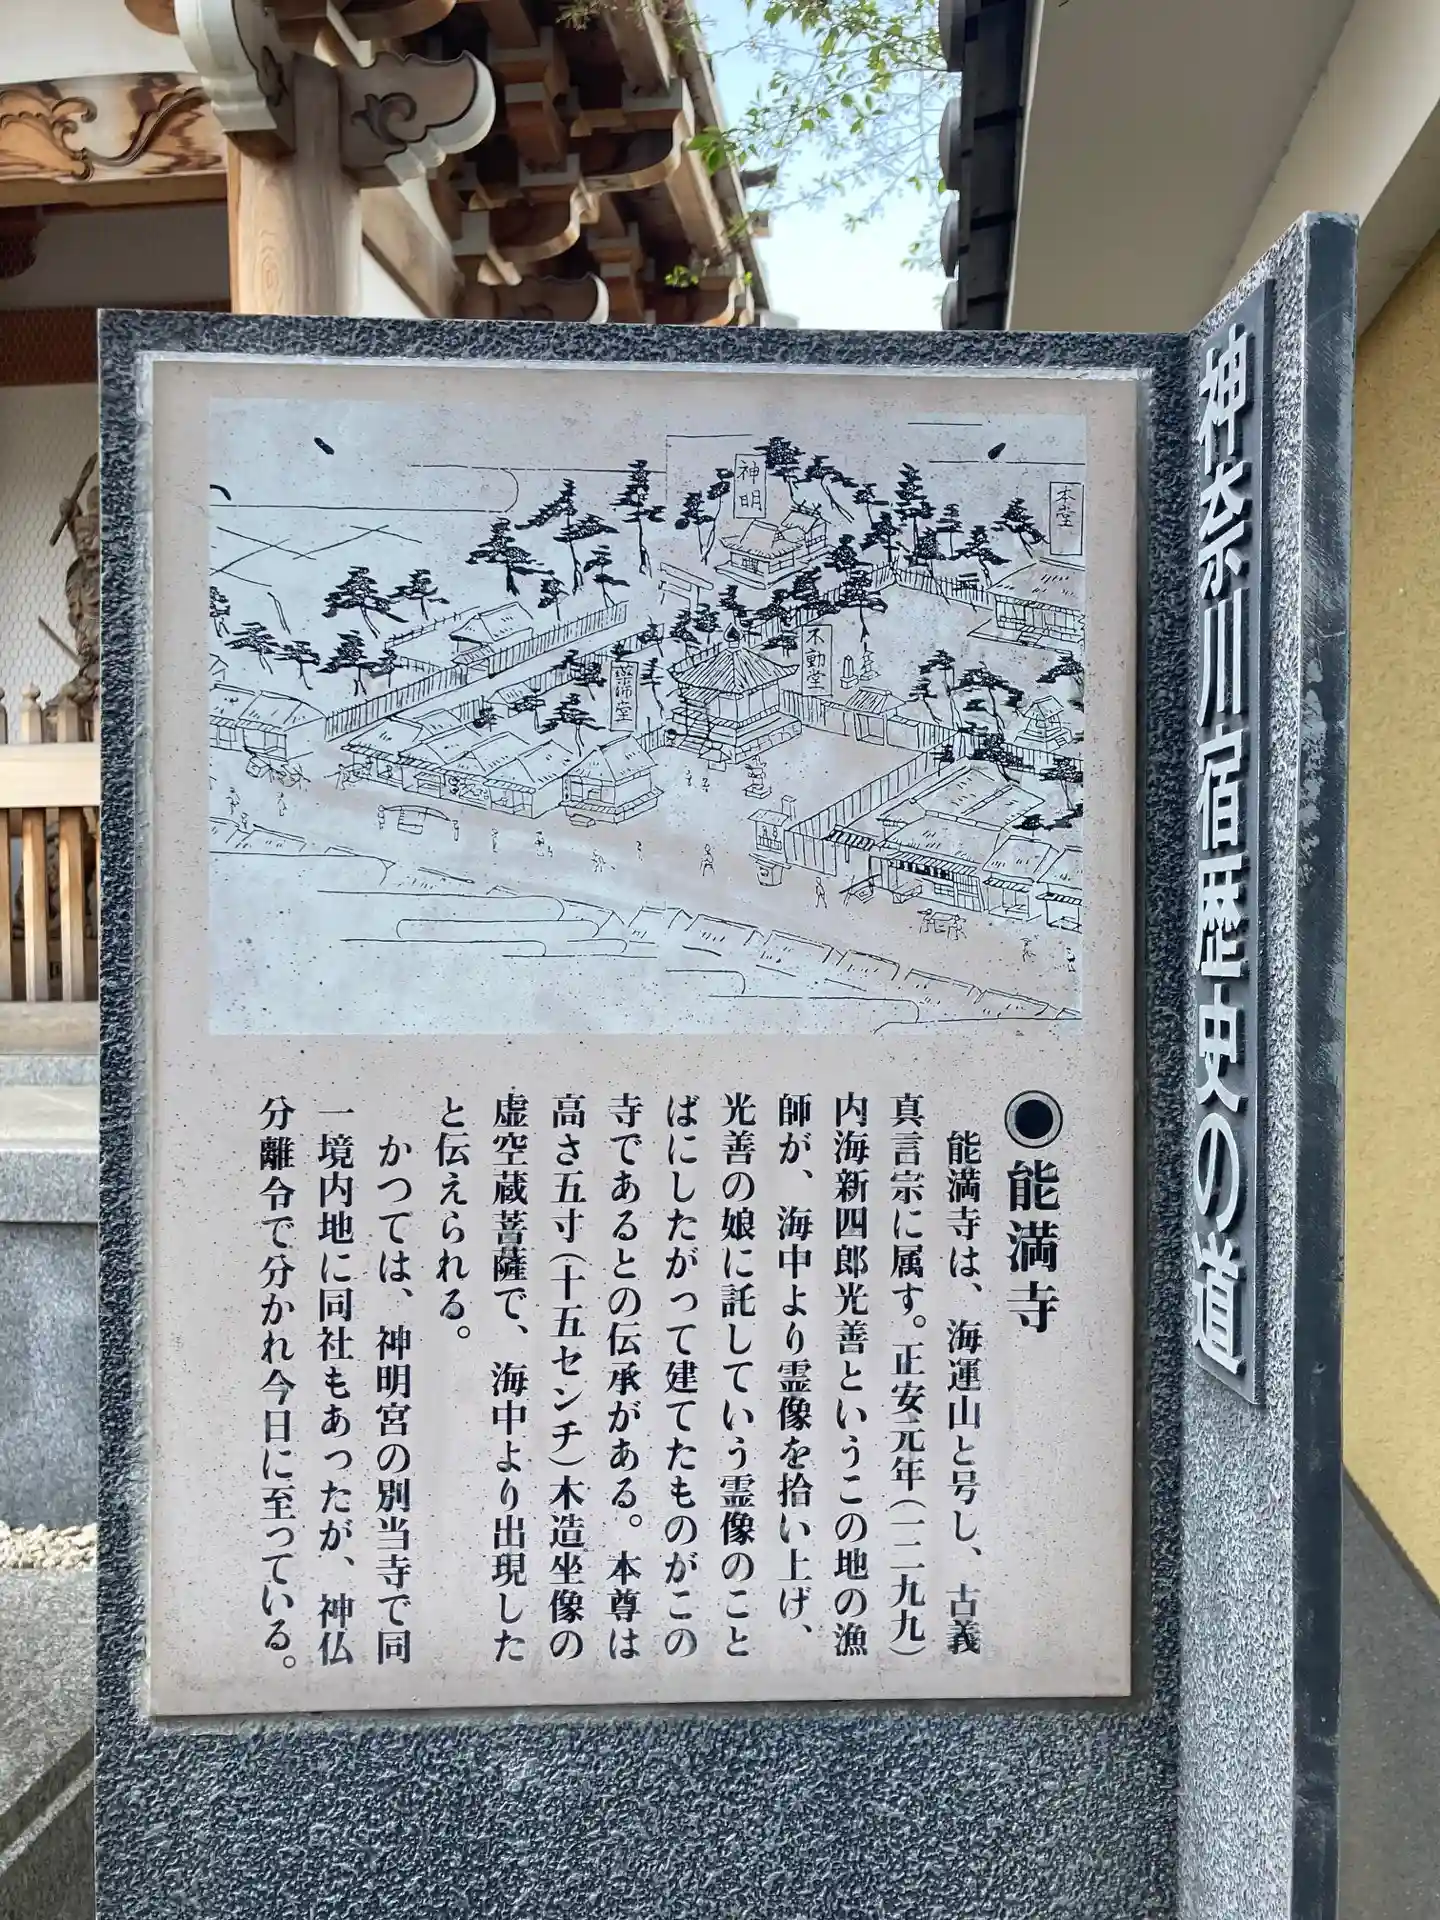 神奈川宿歴史の道
神明
本堂
不動堂
●能満寺
能満寺は、海運山と号し、古義
真言宗に属す。正安元年（一二九九）
内海新四郎光善というこの地の漁
師が、海中より霊像を拾い上げ、
光善の娘に託していう霊像のこと
ばにしたがって建てたものがこの
寺であるとの伝承がある。本尊は
高さ五寸（十五センチ）木造坐像の
虚空蔵菩薩で、海中より出現した
と伝えられる。
かつては、神明宮の別当寺で同
一境内地に同社もあったが、神仏
分離令で分かれ今日に至っている。